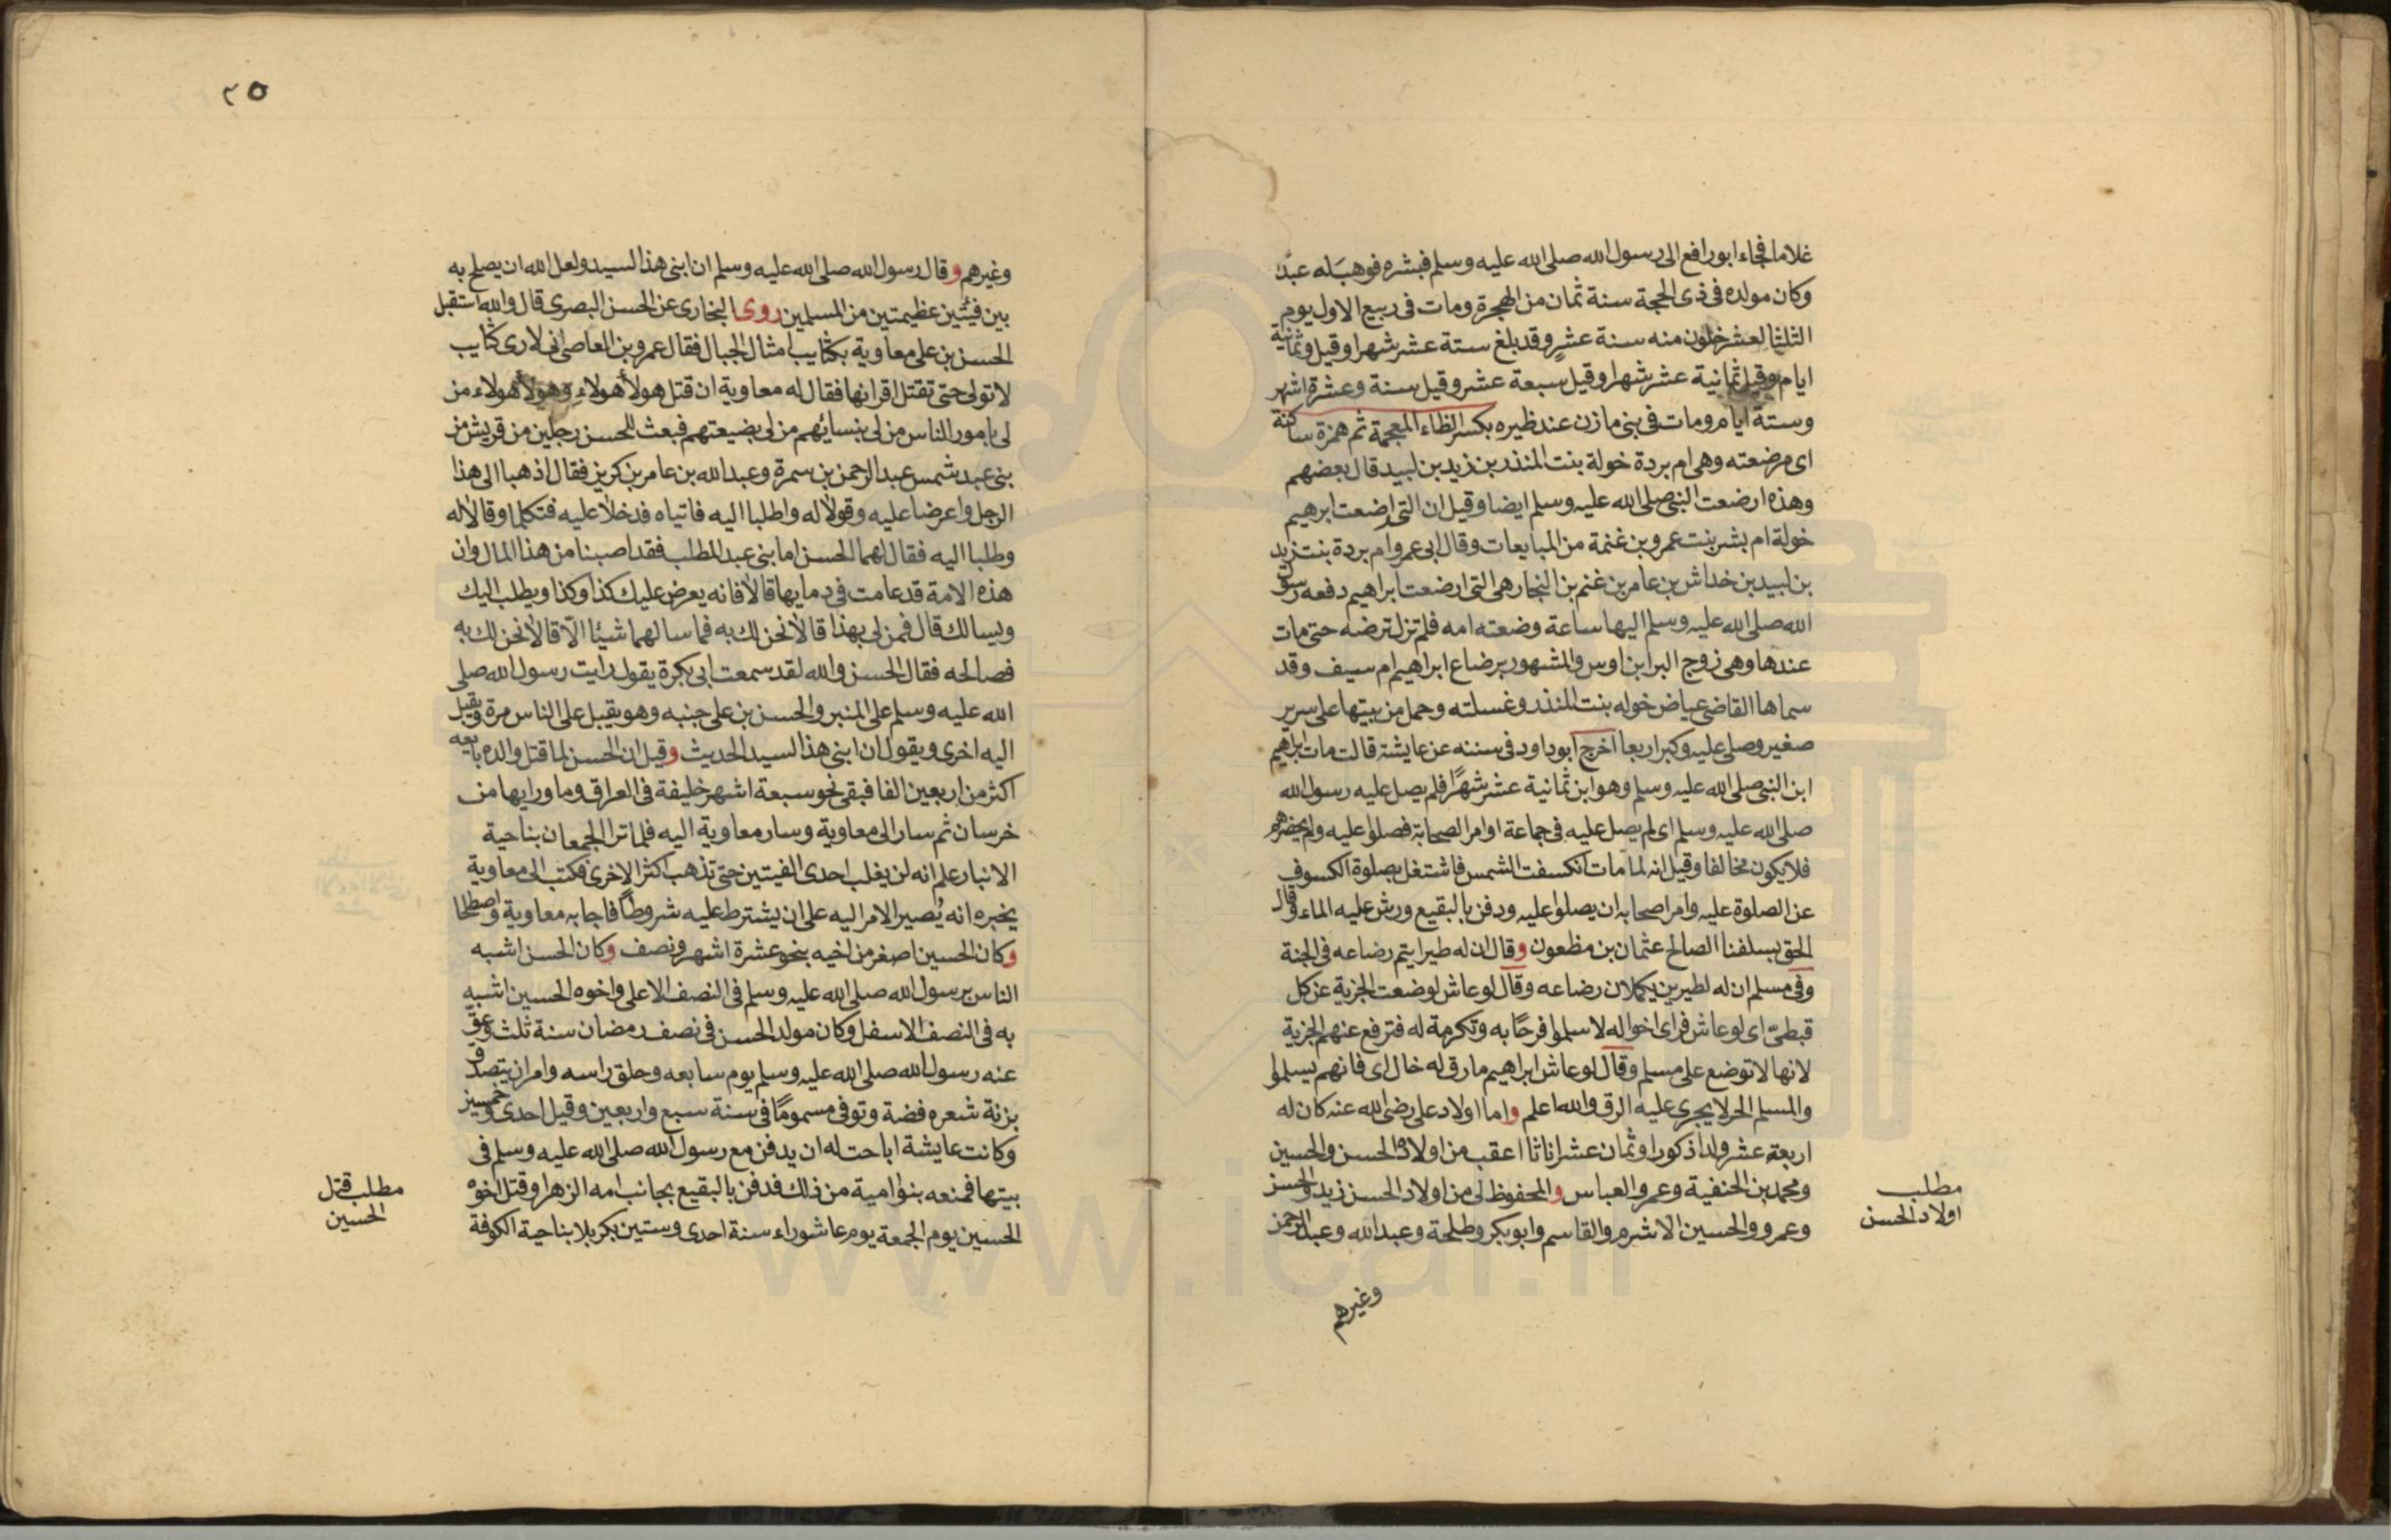 غلاما فجاء ابورافع الى رسول الله صلى الله عليه وسلم فبشره فوهب له عبد
وكان مولده فى ذى الحجة سنة ثمان من الهجرة ومات فى ربيع الاول يوم
الثلثا لعشر خلون منه سنة عشر وقد بلغ ستة عشر شهرا وقيل وثمانية
ايام وقيل ثمانية عشر شهرا وقيل سبعة عشر وقيل سنة وعشرة اشهر
وستة ايام ومات فى بنى مازن عند ظيره بكسر الظاء المعجمة ثم همزة ساكنة
اى مرضعته وهى ام بردة خولة بنت المنذر بن زيد بن لبيد قال بعضهم
وهذه ارضعت النبى صلى الله عليه وسلم ايضا وقيل ان التى ارضعت ابرهيم
خولة ام بشر بنت عمرو بن غنمة من المبايعات وقال ابى عمرو ام بردة بنت زيد
بن لبيد بن خداش بن عامر بن غنم بن النجار هى التى ارضعت ابراهيم دفعه رسول
الله صلى الله عليه وسلم اليها ساعة وضعته امه فلم تزل ترضه حتى مات
عندها وهى زوج البرا بن اوس والمشهور برضاع ابراهيم ام سيف وقد
سماها القاضى عياض خوله بنت المنذر وغسلته وحمل من بيتها على سرير
صغير وصلى عليه وكبر اربعا اخرج ابوداود فى سننه عن عايشة قالت مات ابراهيم
ابن النبى صلى الله عليه وسلم وهو ابن ثمانية عشر شهرًا فلم يصل عليه رسول الله
صلى الله عليه وسلم اى لم يصل عليه فى جماعة او امر الصحابة فصلوا عليه ولم يحضرهم
فلا يكون مخالفا وقيل انه لما مات انكسفت الشمس فاشتغل بصلوة الكسوف
عن الصلوة عليه وامر اصحابه ان يصلوا عليه ودفن بالبقيع ورش عليه الماء وقال
الحق بسلفنا الصالح عثمان بن مظعون وقال ان له طيرا يتم رضاعه فى الجنة
وفى مسلم ان له لطيرين يكملان رضاعه وقال لو عاش لوضعت الجزية عن كل
قبطىّ اى لو عاش فراى اخواله لاسلموا فرحًا به وتكرمة له فترفع عنهم الجزية
لانها لا توضع على مسلم وقال لو عاش ابراهيم مارق له خال اى فانهم يسلموا
والمسلم الحر لا يجرى عليه الرق والله اعلم واما اولاد على رضى الله عنه كان له
اربعة عشر ولدا ذكورا وثمان عشر اناثا اعقب من اولاده الحسن والحسين
ومحمد بن الحنفية وعمر والعباس والمحفوظ لى من اولاد الحسن زيد والحسن
وعمرو والحسين الاشرم والقاسم وابوبكر وطلحة وعبدالله وعبدالرحمن
مطلب
اولاد الحسن
وغيرهم
٢٥
وغيرهم وقال رسول الله صلى الله عليه وسلم ان ابنى هذا السيد ولعل الله ان يصلح به
بين فيئتين عظيمتين من المسلمين روى البخارى عن الحسن البصرى قال والله استقبل
الحسن بن على معاوية بكتايب امثال الجبال فقال عمرو بن العاص انى لارى كتايب
لا تولى حتى تقتل اقرانها فقال له معاوية ان قتل هولاء هولاء وهولاء هولاء من
لى بامور الناس من لى بنسائهم من لى بضيعتهم فبعث للحسن رجلين من قريش من
بنى عبد شمس عبد الرحمن بن سمرة وعبد الله بن عامر بن كريز فقال اذهبا الى هذا
الرجل واعرضا عليه وقولا له واطلبا اليه فاتياه فدخلا عليه فتكلما وقالا له
وطلبا اليه فقال لهما الحسن اما بنى عبد المطلب فقد اصبنا من هذا المال وان
هذه الامة قد عامت فى دمايها قالا فانه يعرض عليك كذا وكذا ويطلب اليك
ويسالك قال فمن لى بهذا قالا نحن لك به فما سالهما شيئا الّا قالا نحن لك به
فصالحه فقال الحسن والله لقد سمعت ابى بكرة يقول رايت رسول الله صلى
الله عليه وسلم على المنبر والحسن بن على جنبه وهو يقبل على الناس مرة ويقبل
اليه اخرى ويقول ان ابنى هذا السيد الحديث وقيل ان الحسن لما قتل والده بايعه
اكثر من اربعين الفا فبقى نحو سبعة اشهر خليفة فى العراق وما ورايها من
خرسان ثم سار الى معاوية وسار معاوية اليه فلما ترا الجمعان بناحية
الانبار علم انه لن يغلب احدى الفيتين حتى تذهب اكثر الاخرى فكتب الى معاوية
يخبره انه يُصير الامر اليه على ان يشترط عليه شروطًا فاجابه معاوية واصطلحا
وكان الحسين اصغر من اخيه بنحو عشرة اشهر ونصف وكان الحسن اشبه
الناس برسول الله صلى الله عليه وسلم فى النصف الاعلى واخوه الحسين اشبه
به فى النصف الاسفل وكان مولد الحسن فى نصف رمضان سنة ثلث وعق
عنه رسول الله صلى الله عليه وسلم يوم سابعه وحلق راسه وامر ان يتصدق
بزنة شعره فضة وتوفى مسمومًا فى سنة سبع واربعين وقيل احدى وخمسين
وكانت عايشة اباحت له ان يدفن مع رسول الله صلى الله عليه وسلم فى
بيتها فمنعه بنوا امية من ذلك فدفن بالبقيع بجانب امه الزهرا وقتل اخوه
الحسين يوم الجمعة يوم عاشوراء سنة احدى وستين بكربلا بناحية الكوفة
مطلب قتل
الحسين
www.ical.ir